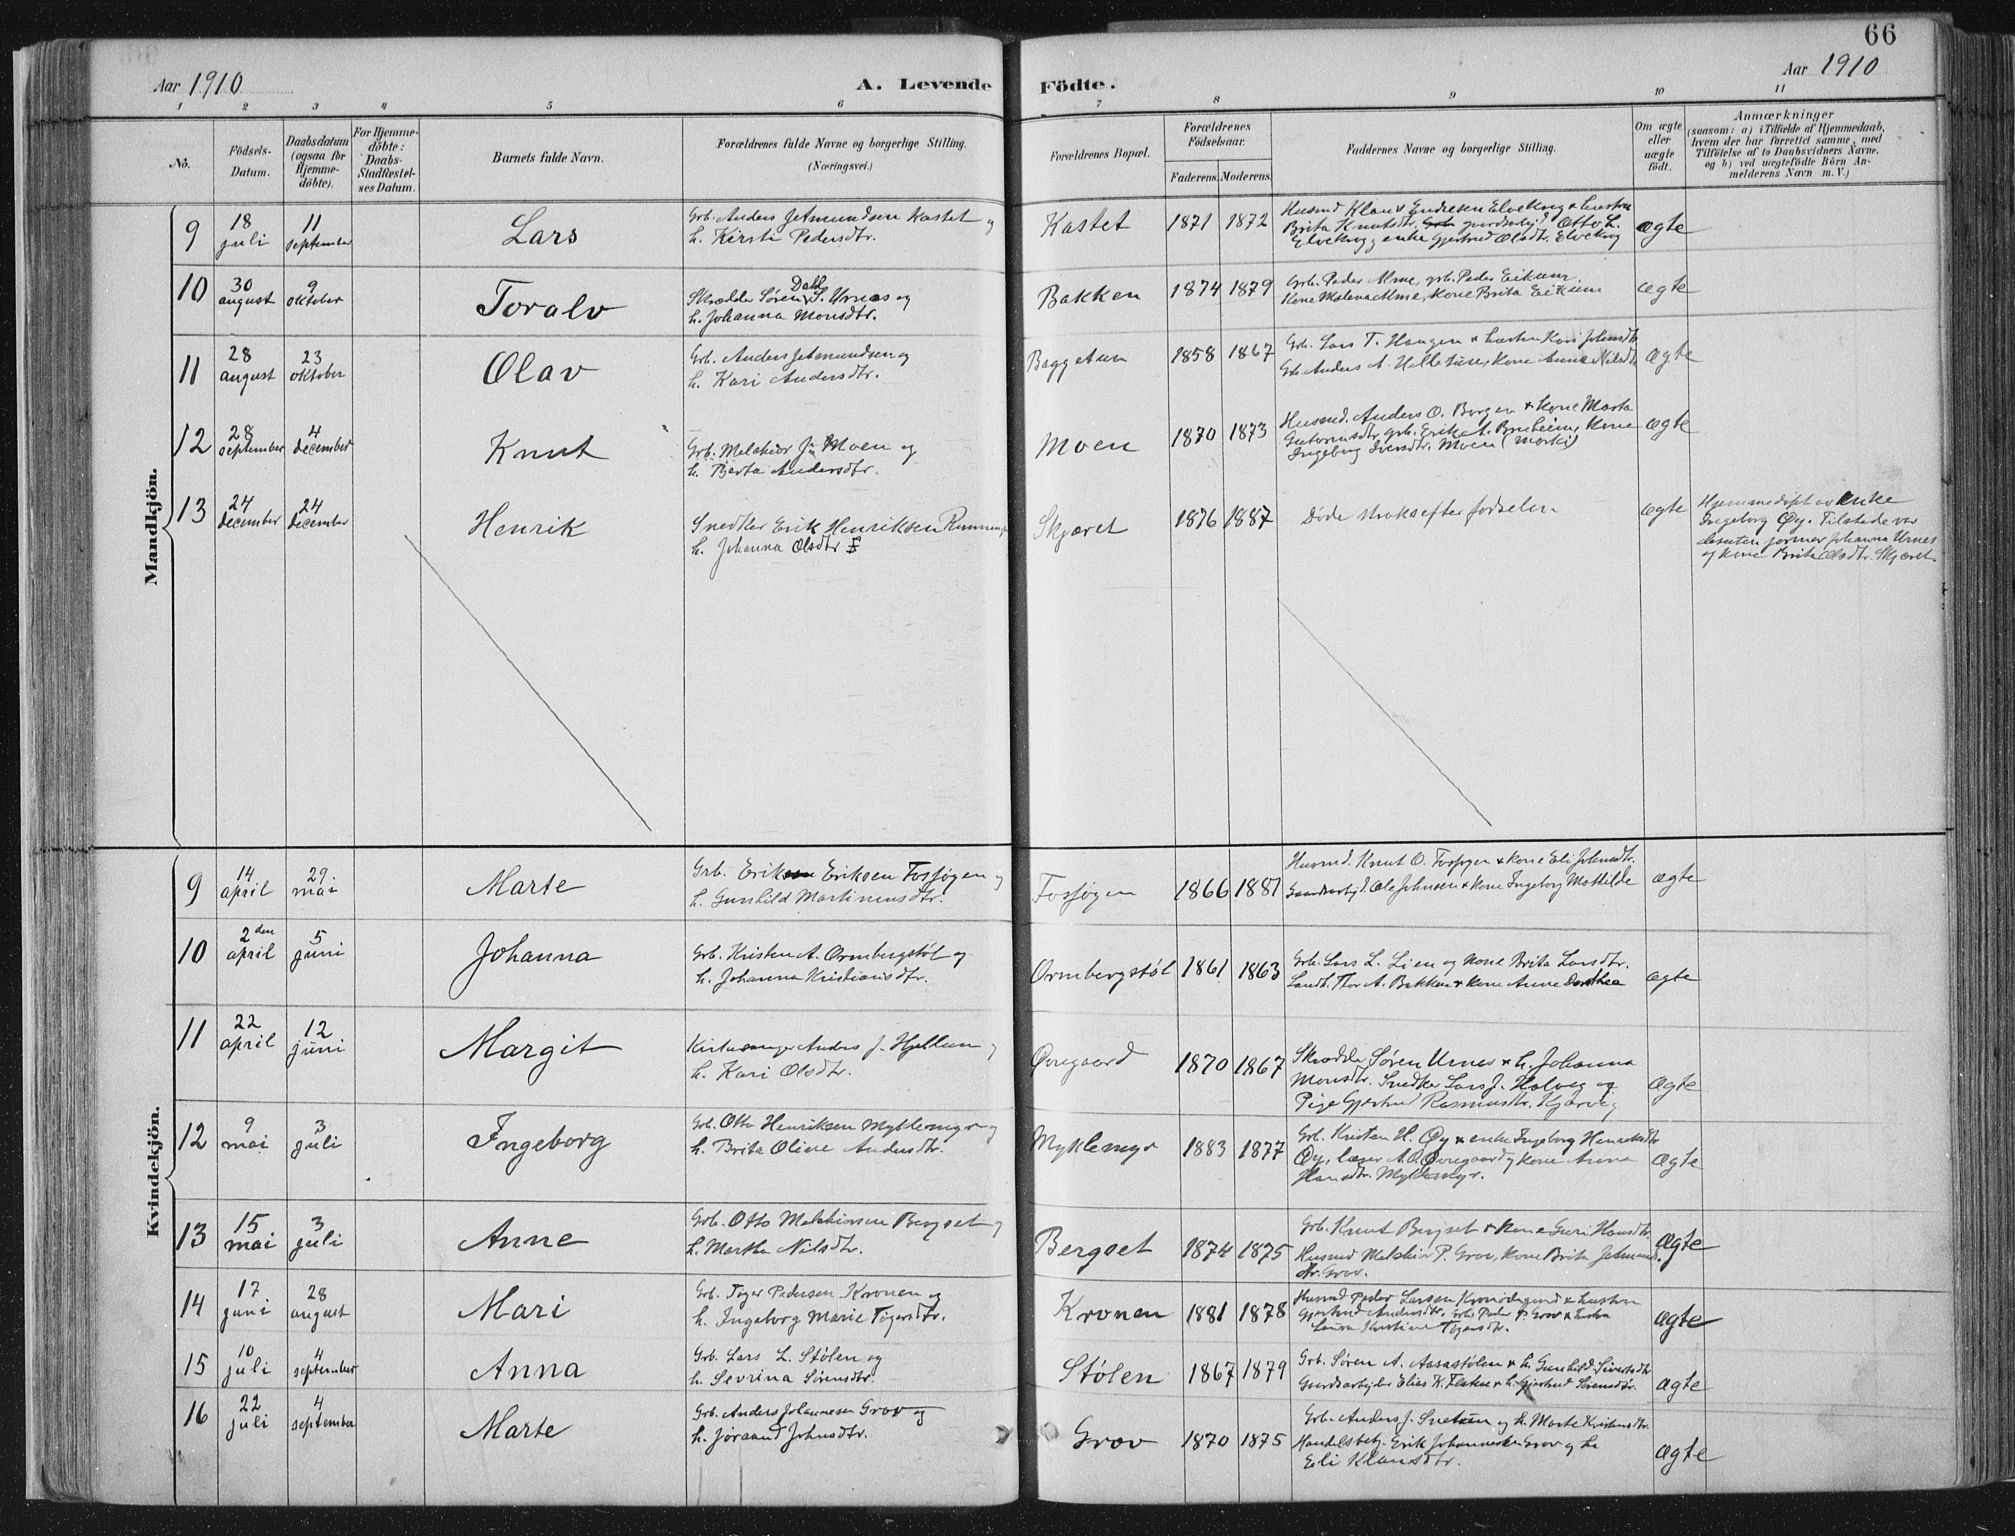 66
Aar 1910
A. Levende Födte.
Aar 1910
1 2 3 4 5 6 7 8 9 10 11
No.
Födsels-Datum.
Daabsdatum (ogsaa for Hjemme-döbte).
For Hjemme-döbte: Daabs-Stadfæstel-ses Datum.
Barnets fulde Navn.
Forældrenes fulde Navne og borgerlige Stilling.
(Næringsvei.)
Forældrenes Bopæl.
Forældrenes Födselsaar.
Faderens. Moderens.
Faddernes Navne og borgerlige Stilling.
Om ægte eller uægte födt.
Anmærkninger
(saasom: a) i Tilfælde af Hjemmedaab, hvem der har forrettet samme, med Tilföielse af to Daabsvidners Navne, og b) ved uægtefödte Börn An-melderens Navn m. V.)
Mandkjön.
9 18 juli 11 september Lars
Grb. Anders Jetmundsen Kastet og
h. Kirsti Pedersdtr.
Kastet 1871 1872
Husmd Klaus Endresen Elvekrog & hustru
Brita Knutsdtr. gaardarbejd. Otto L.
Elvekrog enke Gjertrud Olsdtr. Elvekrog
ægte
10 30 august 9 oktober Toralv
Skrædder Søren Dahl S. Urnes og
h. Johanna Monsdtr.
Bakken 1874 1879
Grb. Peder Alme, grb. Peder Eikum,
Kone Malena Alme, Kone Brita Eikum
ægte
11 28 august 23 oktober Olav
Grb. Anders Jetmundsen og
h. Kari Andersdtr.
Baggetun 1858 1867
Grb. Lars T. Haugen & hustru Kari Johnsdtr
Grb Anders A. Halletun, Kone Anna Nilsdtr
ægte
12 28 september 4 december Knut
Grb. Melchior J. Moen og
h. Berta Andersdtr.
Moen 1870 1873
Husmd. Anders O. Borgen & Kone Marta
Guttormsdtr, grb. Erik A. Bruheim, Kone
Ingeborg Iversdtr. Moen (Mørkri)
ægte
13 24 december 24 december Henrik
Snedker Erik Henriksen
h. Johanna Olsdtr
Skjæret 1876 1887
Døde straks efter fødselen
ægte
Hjemmedøpt av Enke
Ingeborg Øy. Tilstede var
desuten jormor Johanna Urnes
og kone Brita Olsdtr. Skjæret.
Kvindekjön.
9 14 april 29 mai Marte
Grb. Erik Eriksen Fosjøgen og
h. Gunhild Martinusdtr.
Fosjøgen 1866 1881
Husmd. Knut O. Fosjøgen & kone Eli Johnsdtr.
Gaardsarbejd. Ole Johnsen & kone Ingeborg Mathilde
ægte
10 2den april 5 juni Johanna
Grb. Kristen A. Ormbergstøl og
h. Johanna Kristiansdtr.
Ormbergstøl 1861 1863
Grb. Lars L. Lien og kone Brita Larsdtr.
Landh. Thor A. Bakken & kone Anne Dorthea
ægte
11 22 april 12 juni Margit
Kirkesanger Anders J. Hjellum og
h. Kari Olsdtr.
Øvregaard 1870 1867
Skrædder Søren Urnes & h. Johanna
Monsdtr. Snedker Lars J. Halveg og
Pige Gjertrud Rasmusdtr. Kjørvig
ægte
12 9 mai 3 juli Ingeborg
Grb. Otto Henriksen Myklemyr og
h. Brita Oline Andersdtr.
Myklemyr 1883 1877
Grb. Kristen H. Øy & enke Ingeborg Henriksdtr
Øy, lærer A. O. Øvregaard & kone Anna
Hansdtr. Myklemyr.
ægte
13 15 mai 3 juli Anne
Grb. Otto Melchiorsen Bergset og
h. Martha Nilsdtr.
Bergset 1874 1875
Grb. Knut Bergset & kone Guri Hansdtr.
Husmd Melchior P. Grov, kone Brita Jetmunds-
dtr. Grov.
ægte
14 17 juni 28 august Mari
Grb. Tøger Pedersen Kronen og
h. Ingeborg Marie Tøgersdtr.
Kronen 1881 1878
Husmd Peder Larsen & hustru
Gjertrud Andersdtr. Grb. Peder P. Grov & hustru
Laura Kristine Tøgersdtr.
ægte
15 10 juli 4 september Anna
Grb. Lars L. Stølen og
h. Sevrina Sørensdtr.
Stølen 1867 1879
Grb. Søren A. Aasastølen & h. Gunhild Sivertsdtr
Gaardsarbejder Elias K. Flaten & h. Gjertrud Sørensdtr.
ægte
16 22 juli 4 september Marte
Grb. Anders Johannesen Grov og
h. Jørand Johnsdtr.
Grov 1870 1875
Grb. Anders J. Snetun og h. Marte Kristensdtr.
Handelsbetj. Erik Johannesen Grov og h.
Eli Klausdtr.
ægte